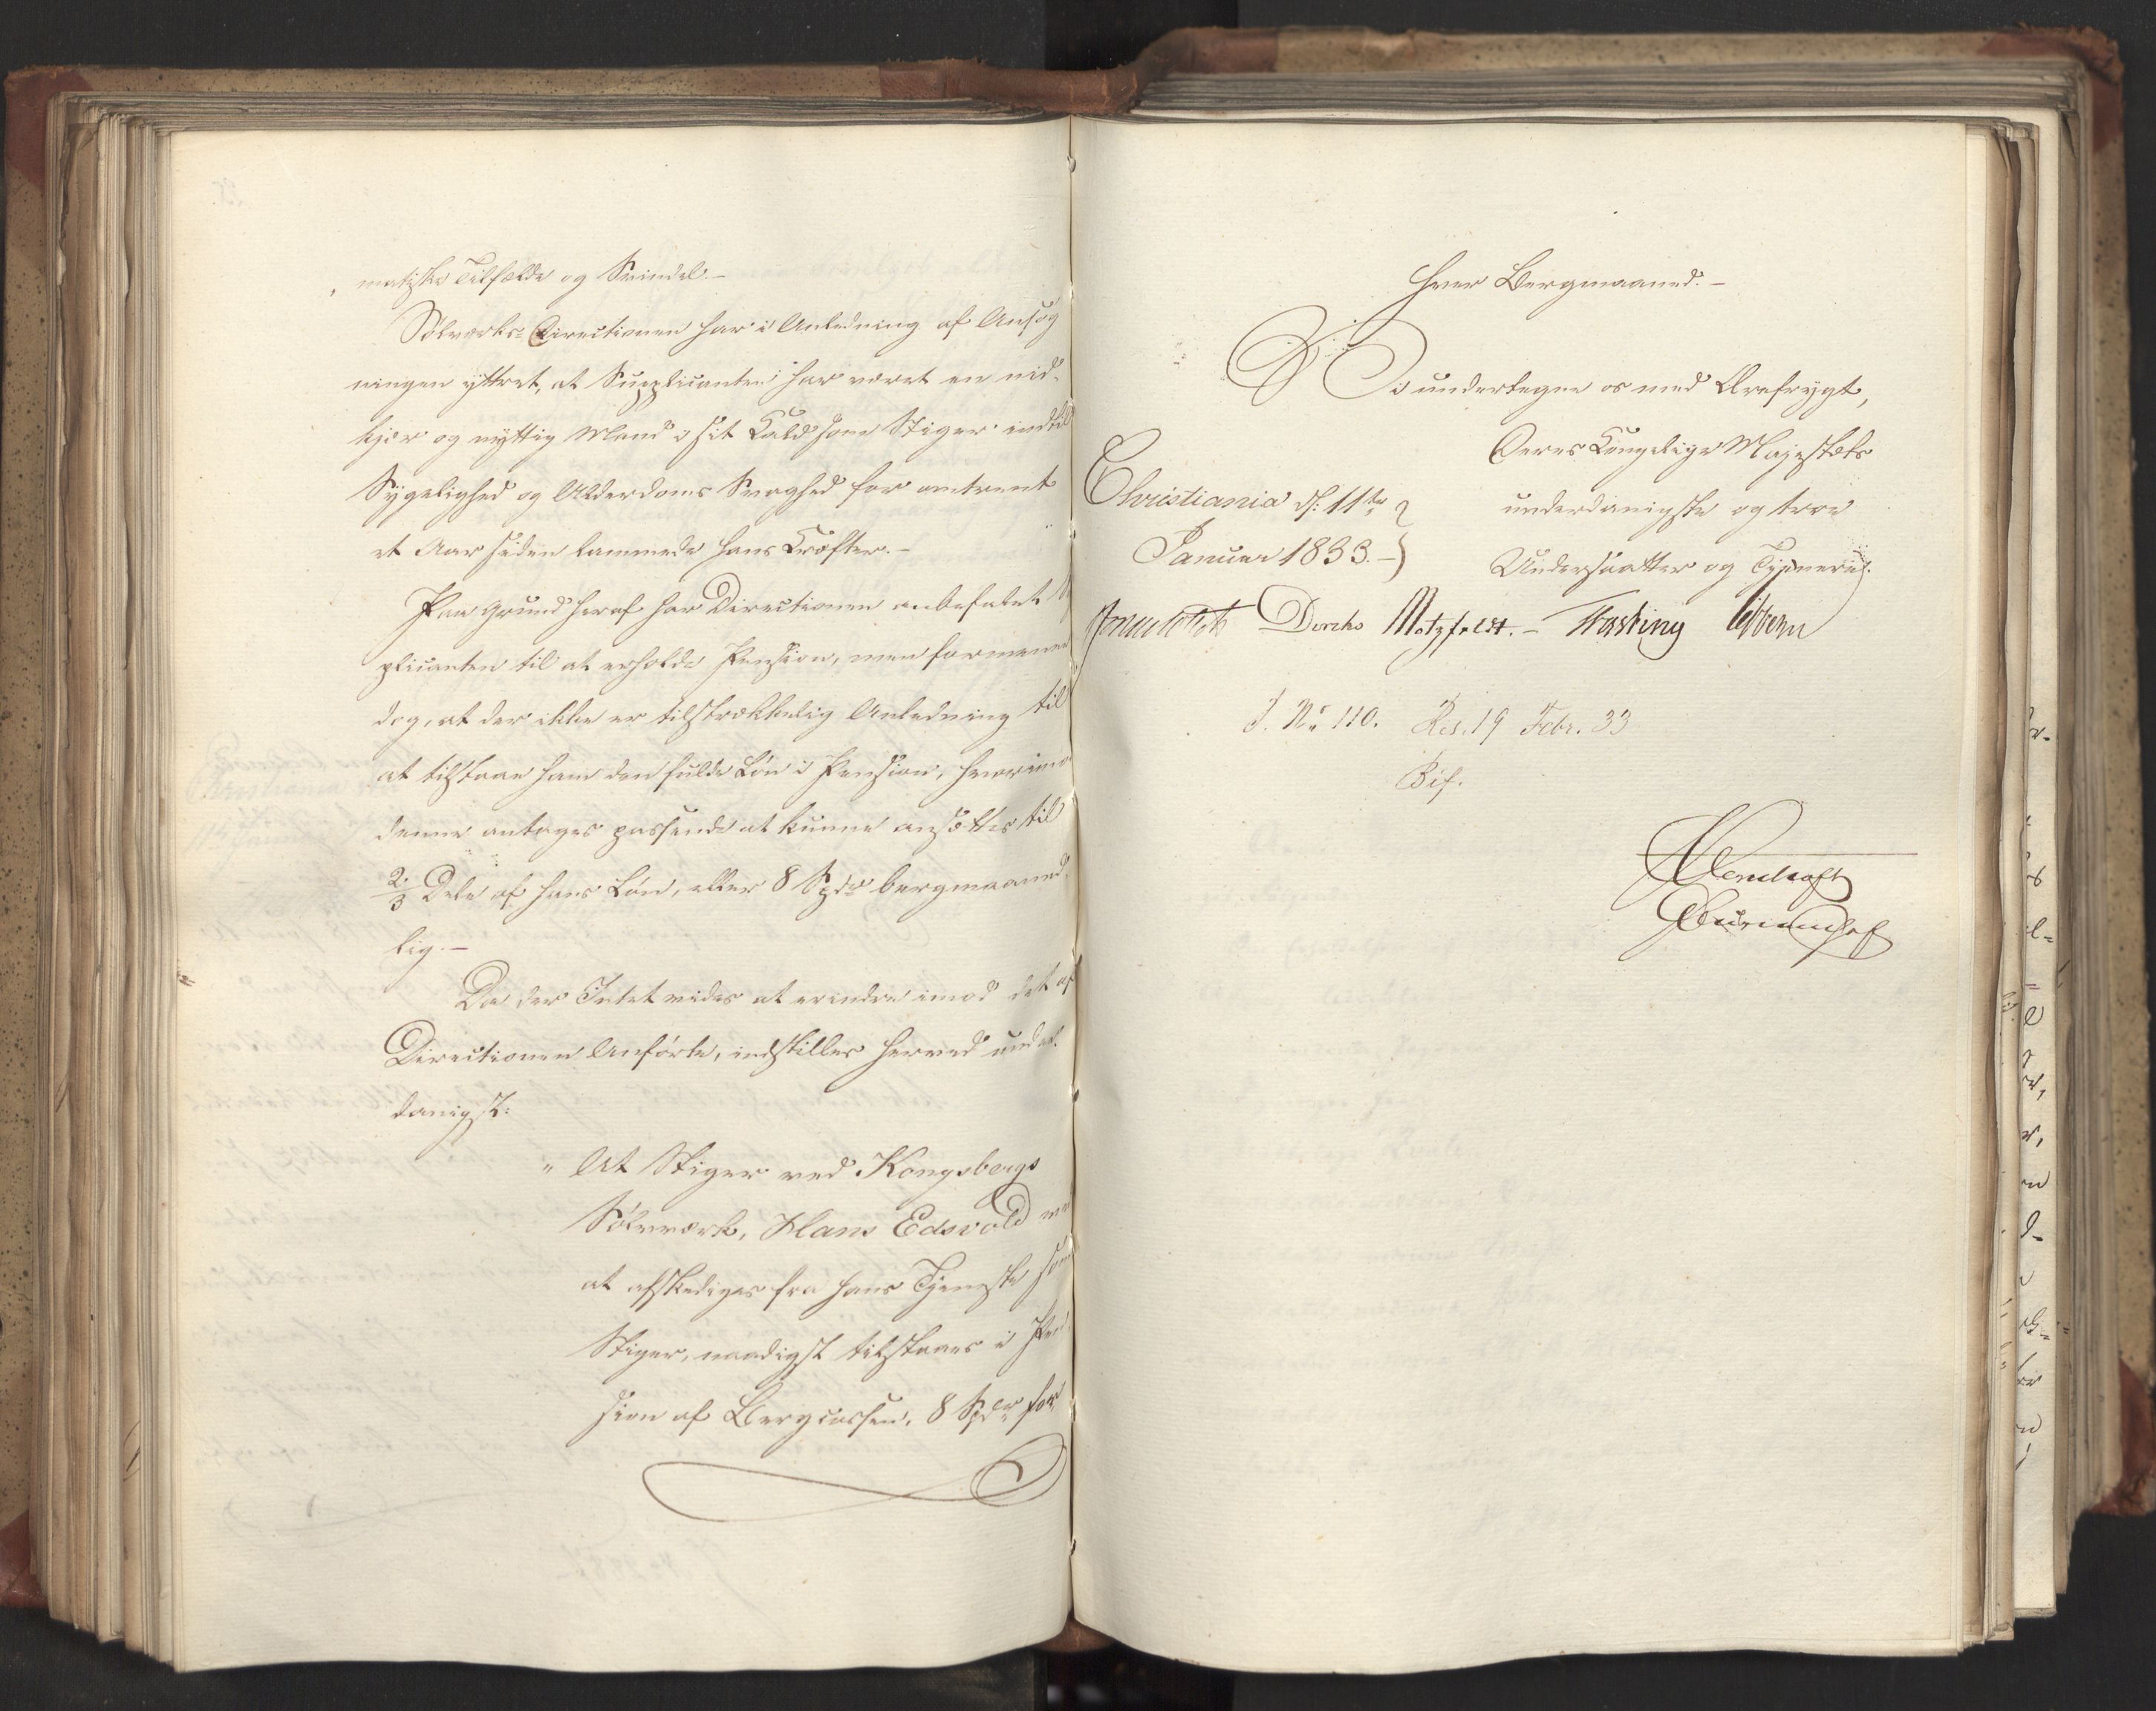 „matiske Tilfælde og Svindel. –
Sølvværks-Directionen har i Anledning af Ansøg
ningen yttret, at Supplicanten har været en nid-
kjær og nyttig Mand i sit Kald som Stiger indtil
Sygelighed og Alderdoms Svaghed for omtrent
et Aar siden lammede hans Kræfter. –
Paa Grund heraf har Directionen anbefalet
plicanten til at erholde Pension, men formener
dog, at der ikke er tilstrækkelig Anledning til
at tilstaae ham den fulde Løn i Pension, hvorimod
denne antages passende at kunne ansættes til
2/3 Dele af hans Løn, eller 8 Spdr bergmaaned-
lig. –
Da der Intet vides at erindre imod det af
Directionen Anførte, indstilles herved under-
danigst:
„At Stiger ved Kongsbergs
Sølvværk, Hans Edsvold
at afskediges fra hans Tjeneste som
Stiger, naadigst tilstaaes i Pen
sion af Bergcassen, 8 Spdr for
hver Bergmaaned. –
Vi undertegne os med Ærefrygt,
Deres Kongelige Majestæts
Christiania d: 11te
underdanigste og troe
Januar 1833. –
Undersaatter og Tjenere.
Diriks Motzfeldt. – Fasting
J. No 110. Res. 19 Febr. 33
Bif.